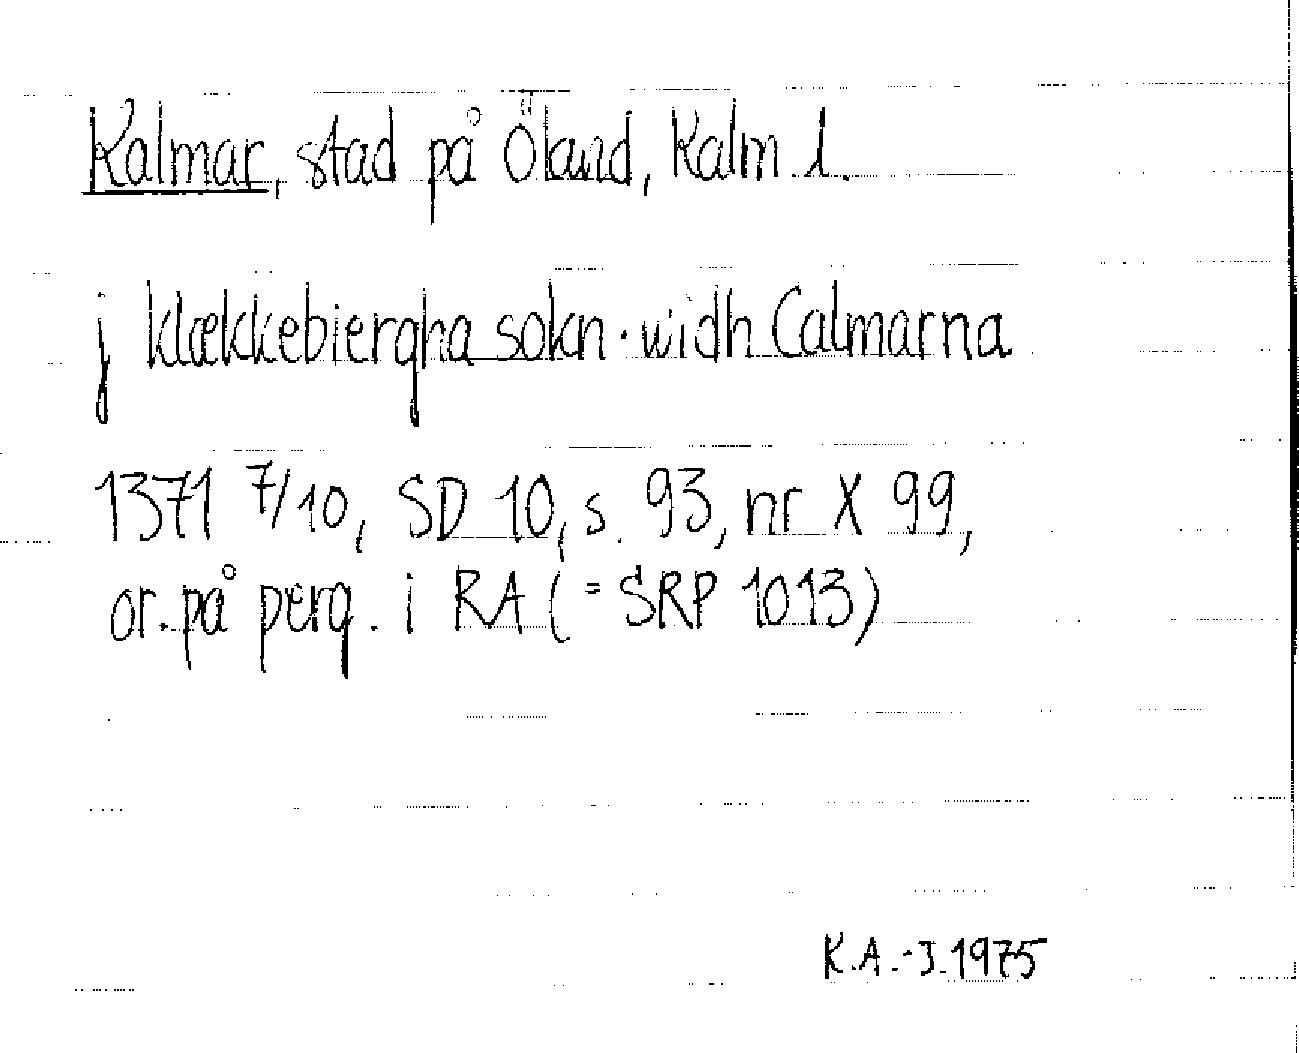 Kalmar, stad på Öland, Kalm l.
j klækkebiergha sokn · widh Calmarna
1371 7/10, SD 10, s. 93, nr X 99,
or. på perg. i RA (= SRP 1013)
K.A.-J. 1975